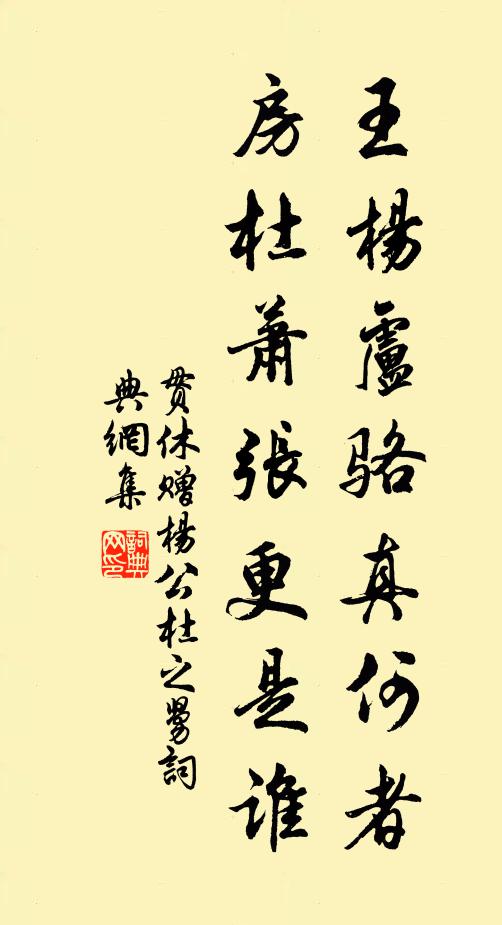 王楊盧骆真何者
房杜蕭張更是誰
貫休贈楊公杜之舅詞
典網集
詞典
网印